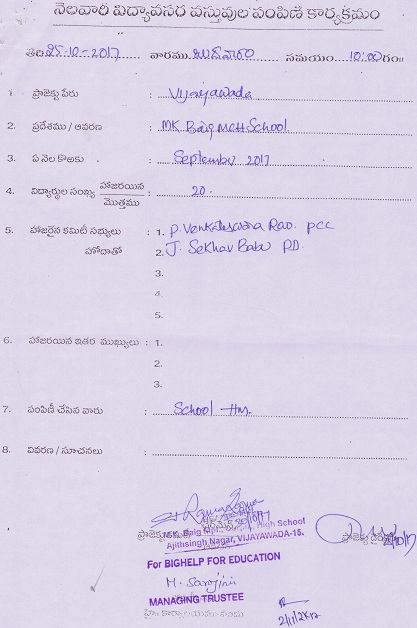 నెలవారీ విద్యావసర వస్తువుల పంపిణీ కార్యక్రమం
తేది 25-10-2017 వారము బుధవారం సమయం 10:00 గం॥
1. ప్రాజెక్టు పేరు : Vijayawada
2. ప్రదేశము / ఆవరణ : MK Baig MCH School
3. ఏ నెల కొఱకు : September 2017
4. విద్యార్థుల సంఖ్య హాజరయిన / మొత్తము : 20.
5. హాజరైన కమిటీ సభ్యులు : 1. P. Venkateswara Rao. PCC
హోదాతో 2. J. Sekhar Babu PD.
3.
4.
5.
6. హాజరయిన ఇతర ముఖ్యులు : 1.
2.
3.
7. పంపిణీ చేసిన వారు : School Hm
8. వివరణ / సూచనలు :
High School
Ajithsingh Nagar, VIJAYAWADA-15.
For BIGHELP FOR EDUCATION
M. Sarojini
MANAGING TRUSTEE
2/11/2017